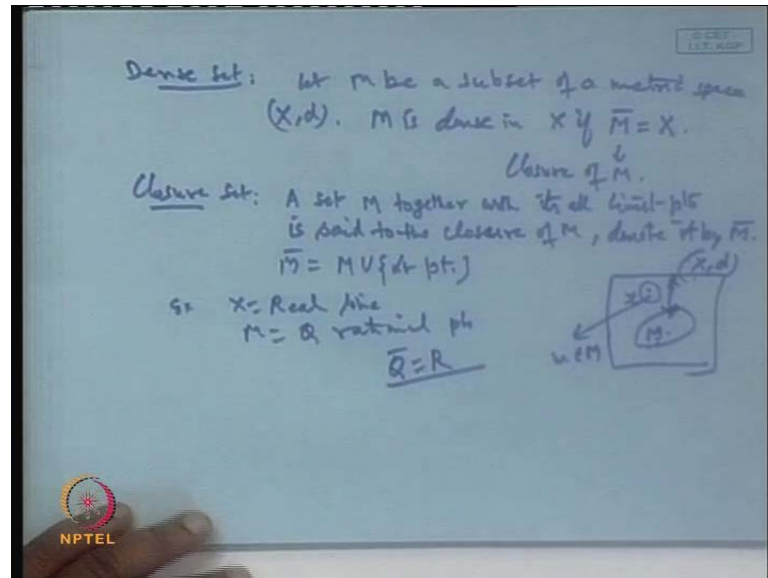 © CET
I.I.T. KGP
Dense Set: Let M be a subset of a metric space
(X,d). M is dense in X if M̄ = X.
Closure of M.
Closure Set: A set M together with its all limit-pts
is said to the closure of M, denote it by M̄.
M̄ = M ∪ { pt.}
(X,d)
Ex X = Real line
M = Q rational pts
Q̄ = R
x
M
∈ M
NPTEL